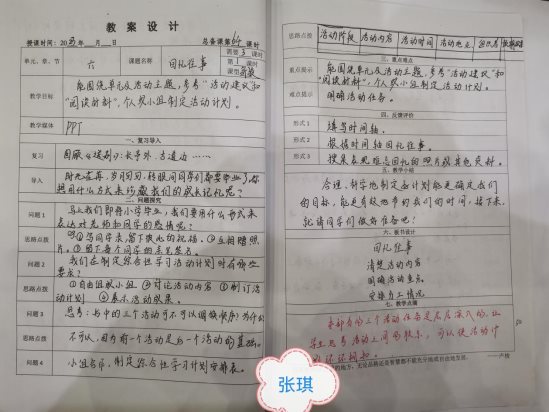 教案设计
授课时间：20 年 月 日 总备课第64课时
需要3课时
单元、章节 六 课题名称 回忆往事 第1课时
课型
教学目标 能围绕单元及活动主题，参考“活动建议”和
“阅读材料”，个人或小组制定活动计划。
教学媒体 PPT
一、复习导入
复习 回顾《送别》：长亭外，古道边……
导入 时光在再，岁月匆匆，转眼间同学们都要毕业了，你
想用什么方式来珍藏我们的成长记忆呢？
二、问题探究
问题1 马上我们即将小学毕业，我们要用什么形式来
表达对老师和同学的感情呢？
思路点拨 ①写同学录，留下衷心的祝福。②互相赠照
片。
问题2 我们在制定综合性学习活动计划时有哪些
要点？
思路点拨 ①自由组成小组 ②讨论活动内容 ③制订活
动计划 ④展示活动成果。
问题3 思考：书中的三个活动可不可以调换顺序？为什么
思路点拨 不可以，因为前一个活动是后一个活动的基础。
问题4 小组合作，制定综合性学习计划安排表。
思路点拨 活动阶段 活动内容 活动时间 活动地点
三、重点难点
重点提示 能围绕单元及活动主题，参考“活动建议”和
“阅读材料”，个人或小组制定活动计划。
难点提示 明确活动任务。
四、反馈评价
形式1 填写时间轴。
形式2 根据时间轴回忆往事。
形式3 搜集表现难忘回忆的照片或其他资料。
五、教学小结
合理、科学地制定出计划能更确定我们
的目标，能更有效地节约我们的时间，接下来，
就请同学们做好准备吧！
六、板书设计
回忆往事
清楚活动内容
明确活动重点。
安排分工情况。
七、教学点滴
本部分的三个活动任务是层层深入的，让
学生思考活动上间的联系，可以使活动计
张琪